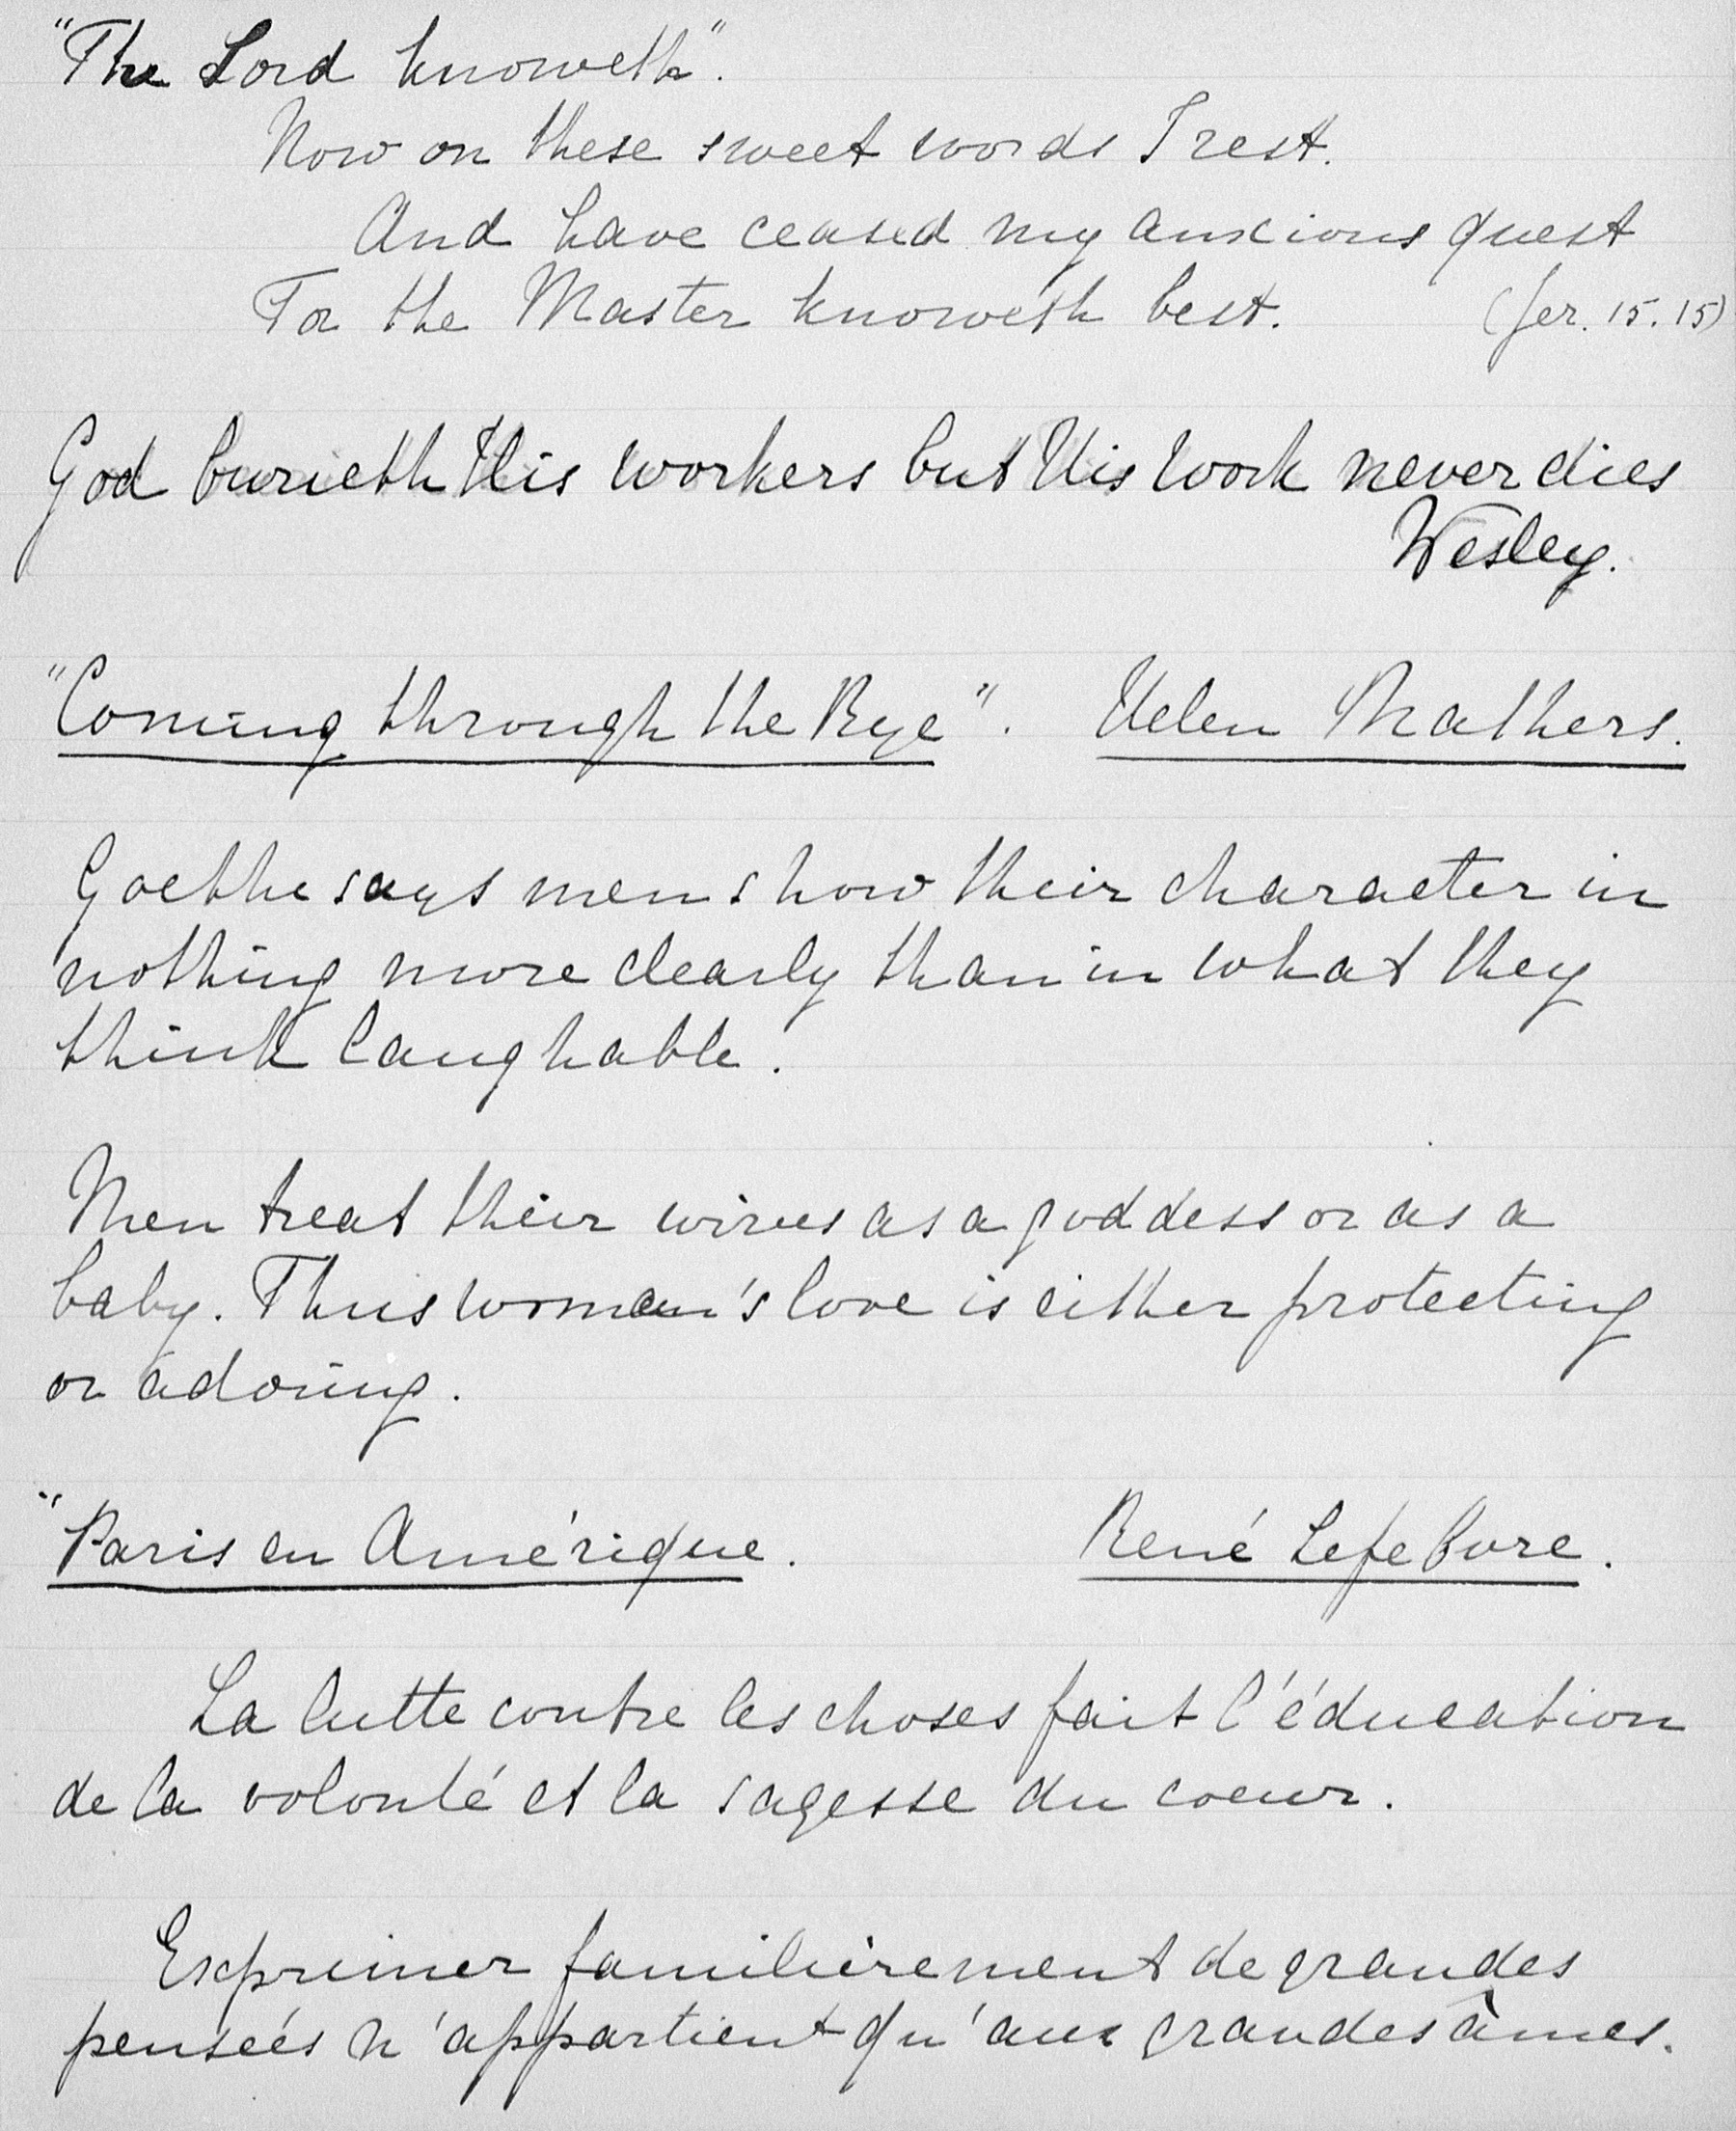 "The Lord knoweth".
Now on these sweet words I rest.
And have ceased my anxious quest
For the Master knoweth best. (Jer. 15. 15)
God burieth His workers but His work never dies
Wesley.
"Coming through the Rye". Helen Mathers.
Goethe says men show their character in
nothing more clearly than in what they
think laughable.
Men treat their wives as a goddess or as a
baby. Thus woman's love is either protecting
or adoring.
"Paris en Amérique. René Lefebvre.
La lutte contre les choses fait l'éducation
de la volonté et la sagesse du coeur.
Exprimer familièrement de grandes
pensées n'appartient qu'aux grandes âmes.